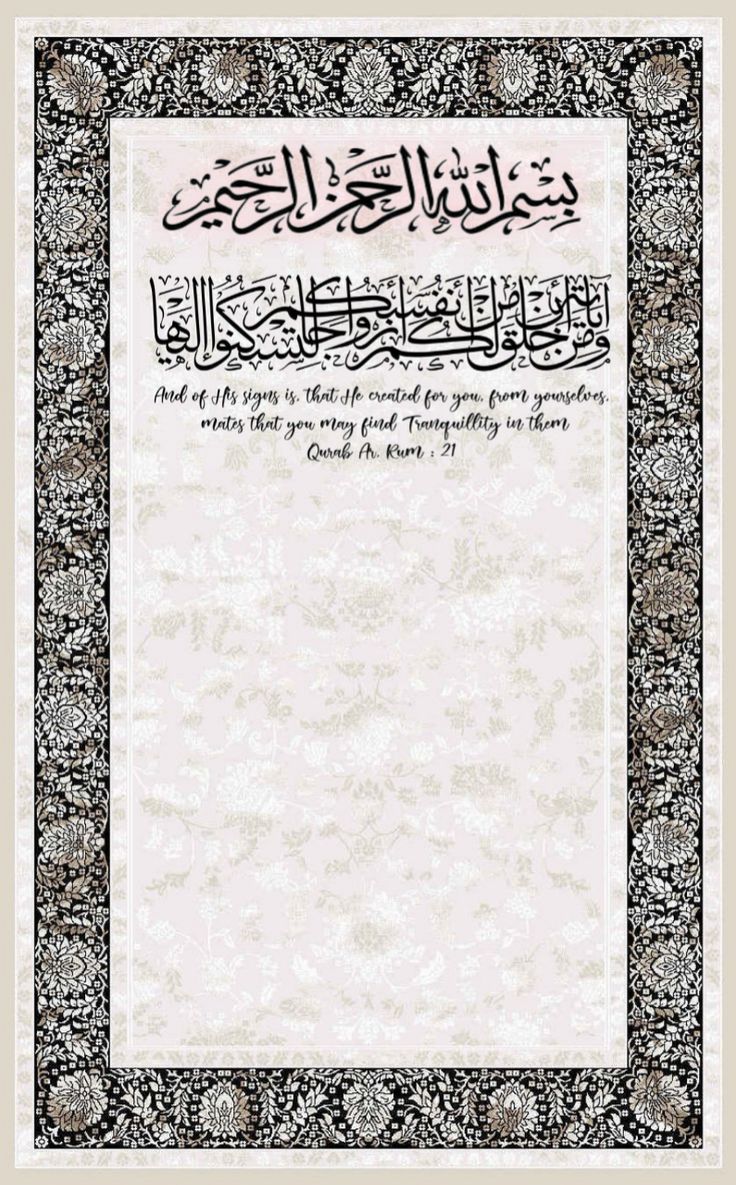 بِسْمِ اللهِ الرَّحْمٰنِ الرَّحِيْمِ
وَمِنْ آيَاتِهِ أَنْ خَلَقَ لَكُم مِّنْ أَنفُسِكُمْ أَزْوَاجًا لِّتَسْكُنُوا إِلَيْهَا
And of His signs is, that He created for you, from yourselves,
mates that you may find Tranquillity in them
Qurab Ar. Rum : 21